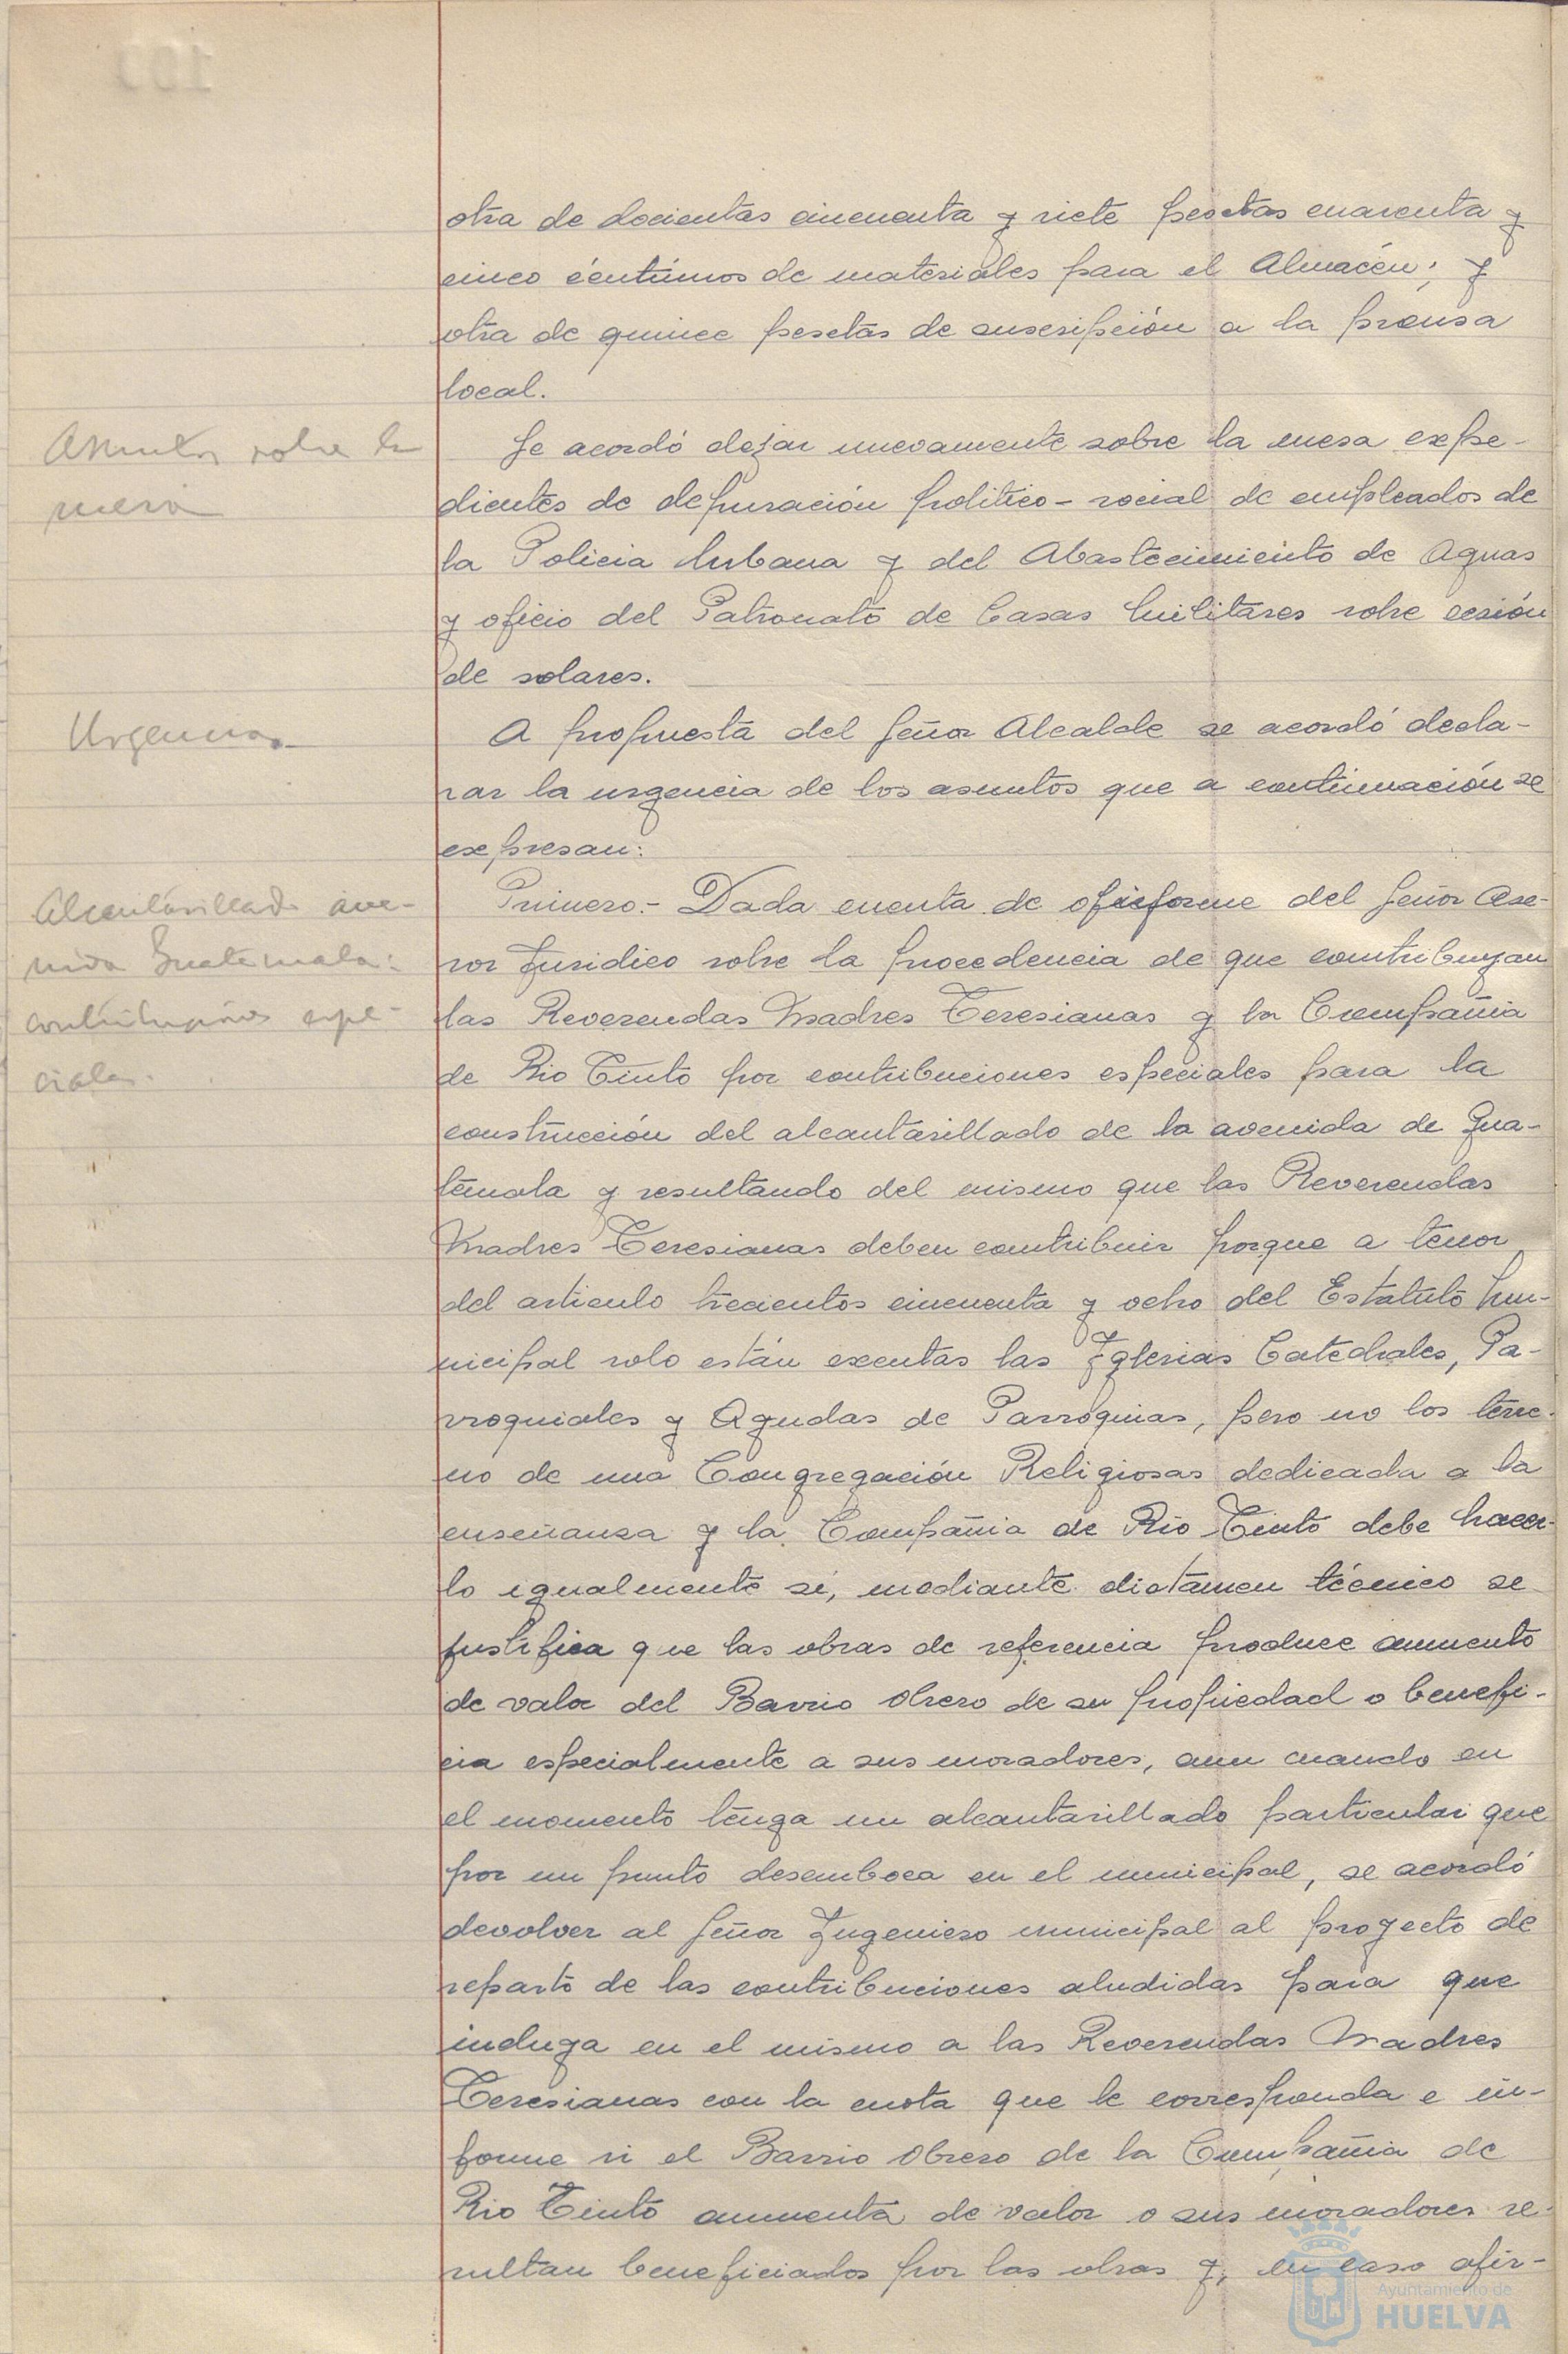 otra de docientas cincuenta y siete pesetas cuarenta y
cinco céntimos de materiales para el Almacén; y
otra de quince pesetas de suscripción a la prensa
local.
Asuntos sobre la
mesa
Se acordó dejar nuevamente sobre la mesa expe-
dientes de depuración político-social de empleados de
la Policia Urbana y del Abastecimiento de Aguas
y oficio del Patronato de Casas Militares sobre cesión
de solares.
Urgencias
A propuesta del Señor Alcalde se acordó decla-
rar la urgencia de los asuntos que a continuación se
expresan:
Alcantarillado ave-
nida Guatemala:
contribuciones espe-
ciales.
Primero.- Dada cuenta de informe del Señor Ase-
sor Juridico sobre la procedencia de que contribuyan
las Reverendas Madres Teresianas y la Compañia
de Rio Tinto por contribuciones especiales para la
construcción del alcantarillado de la avenida de Gua-
temala y resultando del mismo que las Reverendas
Madres Teresianas deben contribuir porque a tenor
del articulo trecientos cincuenta y ocho del Estatuto Mu-
nicipal solo están exentas las Iglesias Catedrales, Pa-
rroquiales y Ayudas de Parroquias, pero no los terre-
no de una Congregación Religiosas dedicada a la
enseñanza y la Compañia de Rio Tinto debe hacer-
lo igualmente si, mediante dictámen técnico se
justifica que las obras de referencia produce aumento
de valor del Barrio Obrero de su propiedad o benefi-
cia especialmente a sus moradores, aun cuando en
el momento tenga un alcantarillado particular que
por un punto desemboca en el municipal, se acordó
devolver al Señor Ingeniero municipal al proyecto de
reparto de las contribuciones aludidas para que
incluya en el mismo a las Reverendas Madres
Teresianas con la cuota que le corresponda e in-
forme si el Barrio Obrero de la Compañia de
Rio Tinto aumenta de valor o sus moradores re-
sultan beneficiados por las obras y, en caso afir-
Ayuntamiento de
HUELVA